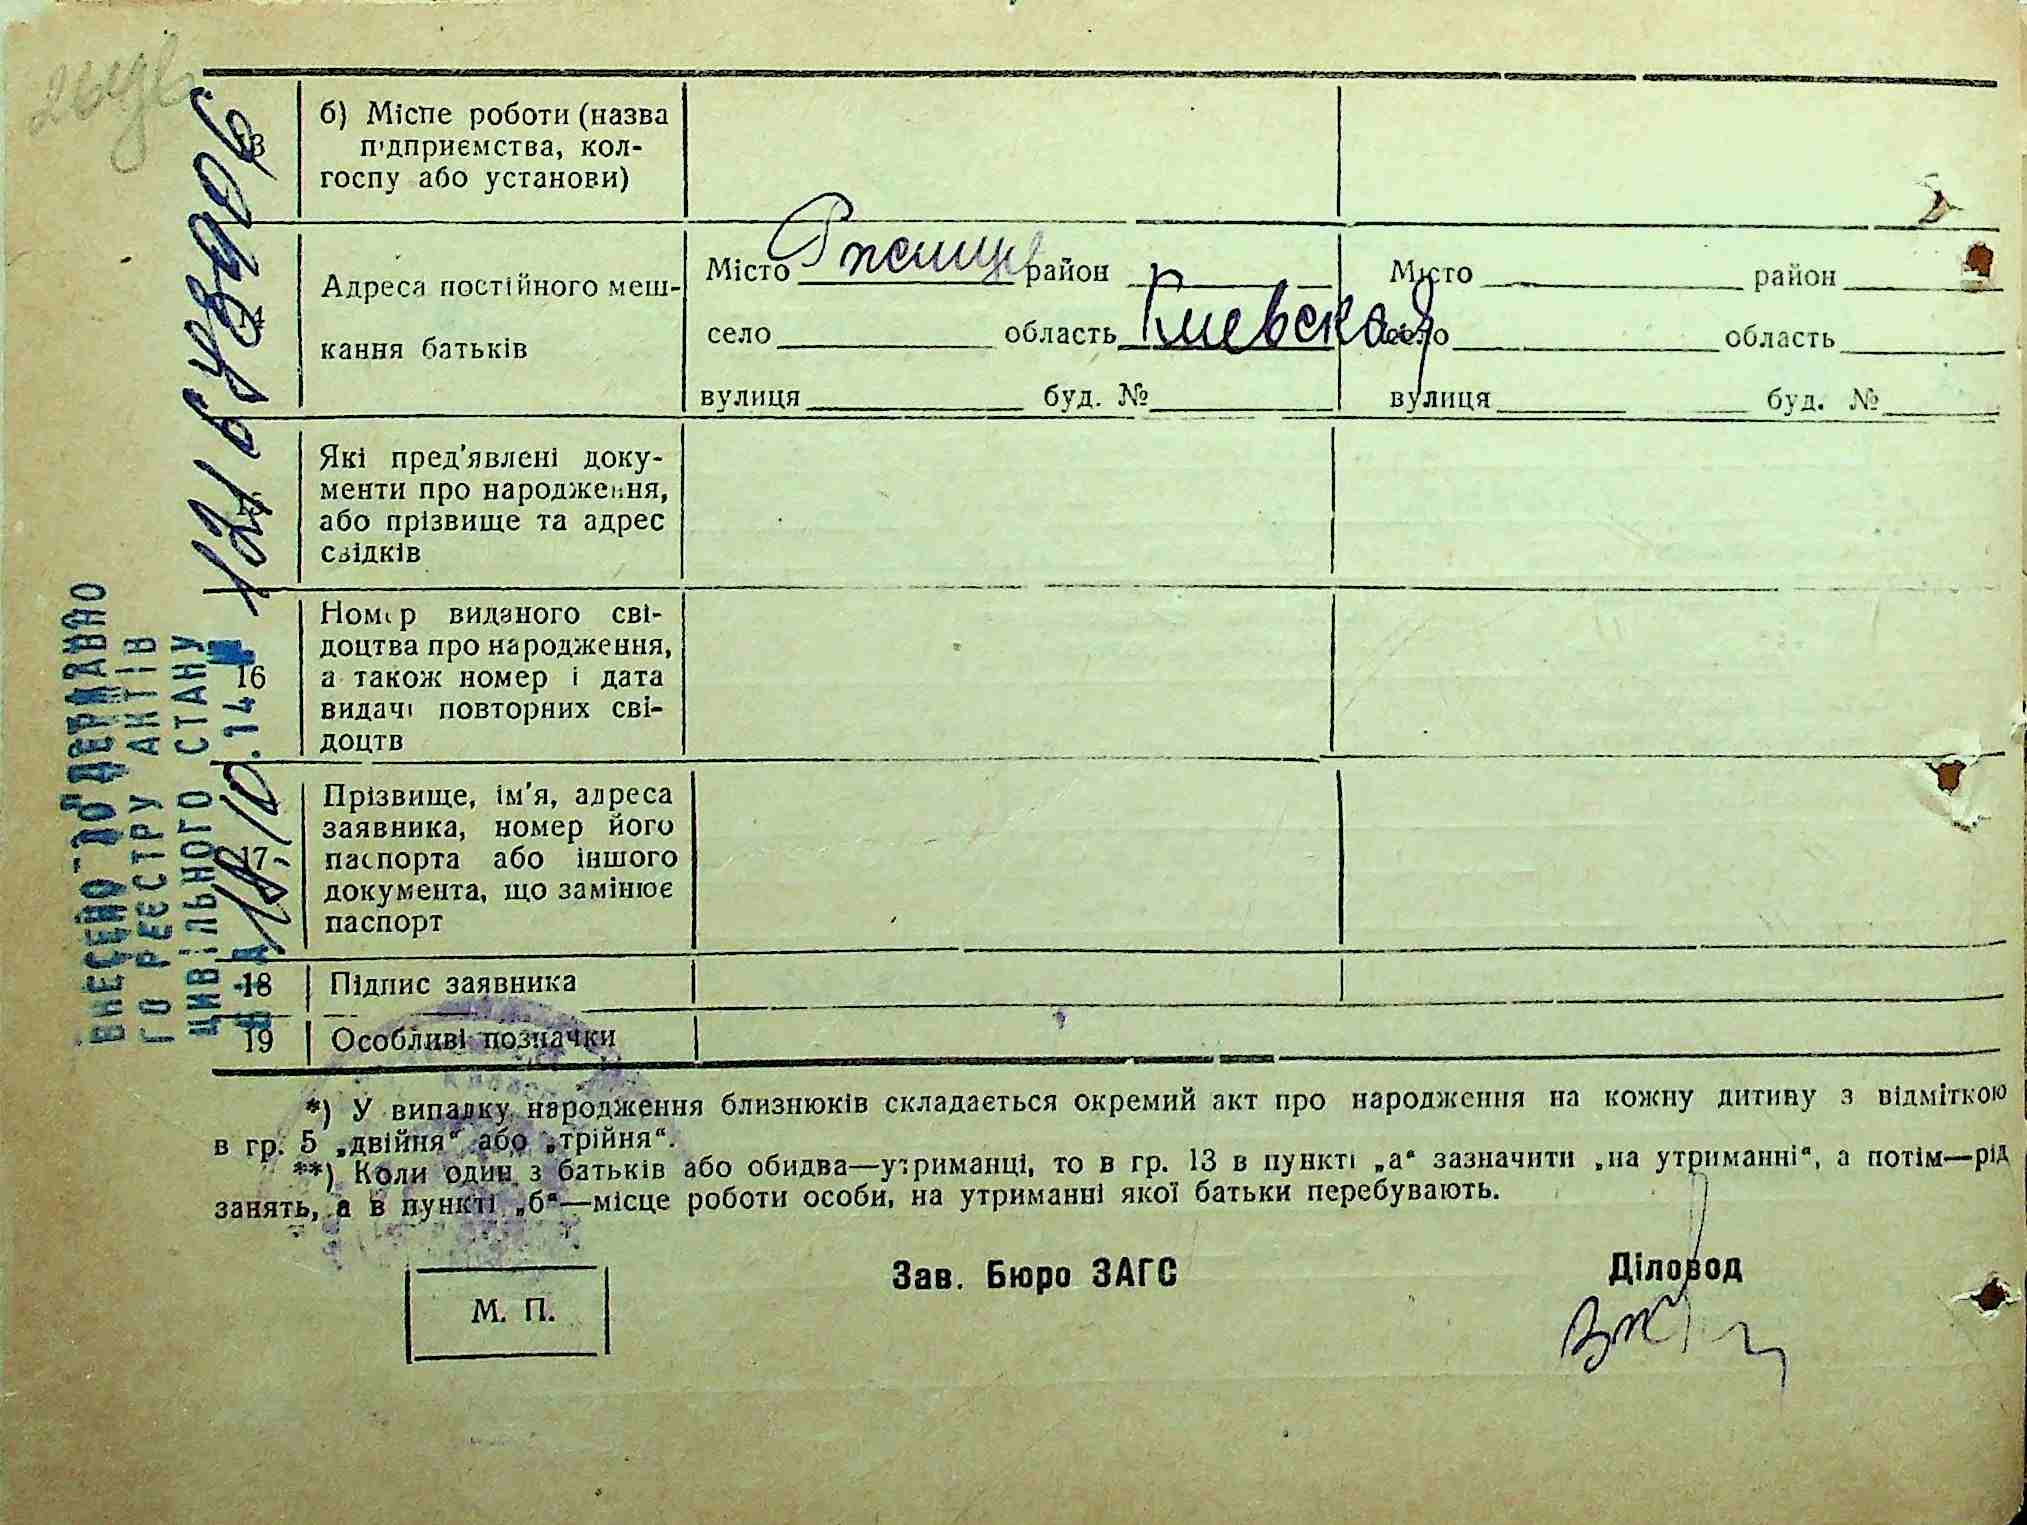 13
б) Місце роботи (назва
підприємства, кол-
госпу або установи)
14
Адреса постійного меш-
кання батьків
Місто Ржищев район
село область Киевская
вулиця буд. №
Місто район
село область
вулиця буд. №
15
Які пред'явлені доку-
менти про народження,
або прізвище та адрес
свідків
16
Номер виданого сві-
доцтва про народження,
а також номер і дата
видачі повторних сві-
доцтв
17
Прізвище, ім'я, адреса
заявника, номер його
паспорта або іншого
документа, що замінює
паспорт
18 Підпис заявника
19 Особливі позначки
*) У випадку народження близнюків складається окремий акт про народження на кожну дитину з відміткою
в гр. 5 „двійня“ або „трійня“.
**) Коли один з батьків або обидва—утриманці, то в гр. 13 в пункті „а“ зазначити „на утриманні“, а потім—рід
занять, а в пункті „б“—місце роботи особи, на утриманні якої батьки перебувають.
М. П.
Зав. Бюро ЗАГС
Діловод
ВНЕСЕНО ДО ДЕРЖАВНО
ГО РЕЄСТРУ АКТІВ
ЦИВІЛЬНОГО СТАНУ
18.10.14